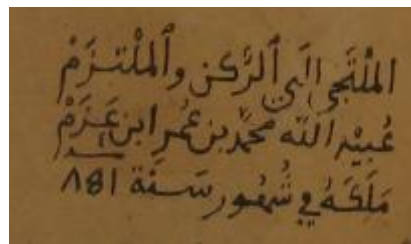 الملتجي إلى الركن والملتزم
عبيد الله محمد بن عمر ابن عزم
ملكه في شهور سنة ٨٨١